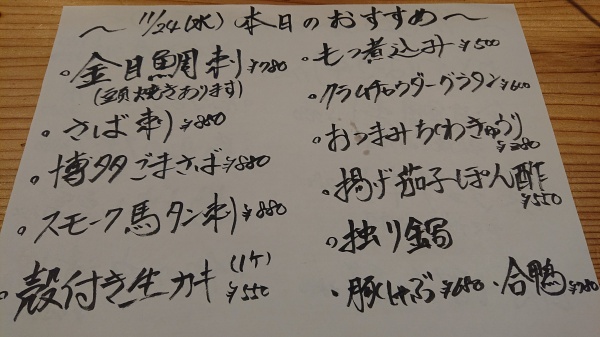 ～ 11/24(水) 本日のおすすめ ～
。金目鯛刺 ¥780
(頭焼きあります)
。さば刺 ¥880
。博多ごまさば ¥880
。スモーク馬タン刺 ¥880
。殻付き生カキ (1ケ) ¥550
。もつ煮込み ¥500
。クラムチャウダーグラタン ¥600
。おつまみちくわきゅうり
¥380
。揚げ茄子ぽん酢
¥550
。独り鍋
・豚しゃぶ ¥680 ・合鴨 ¥780